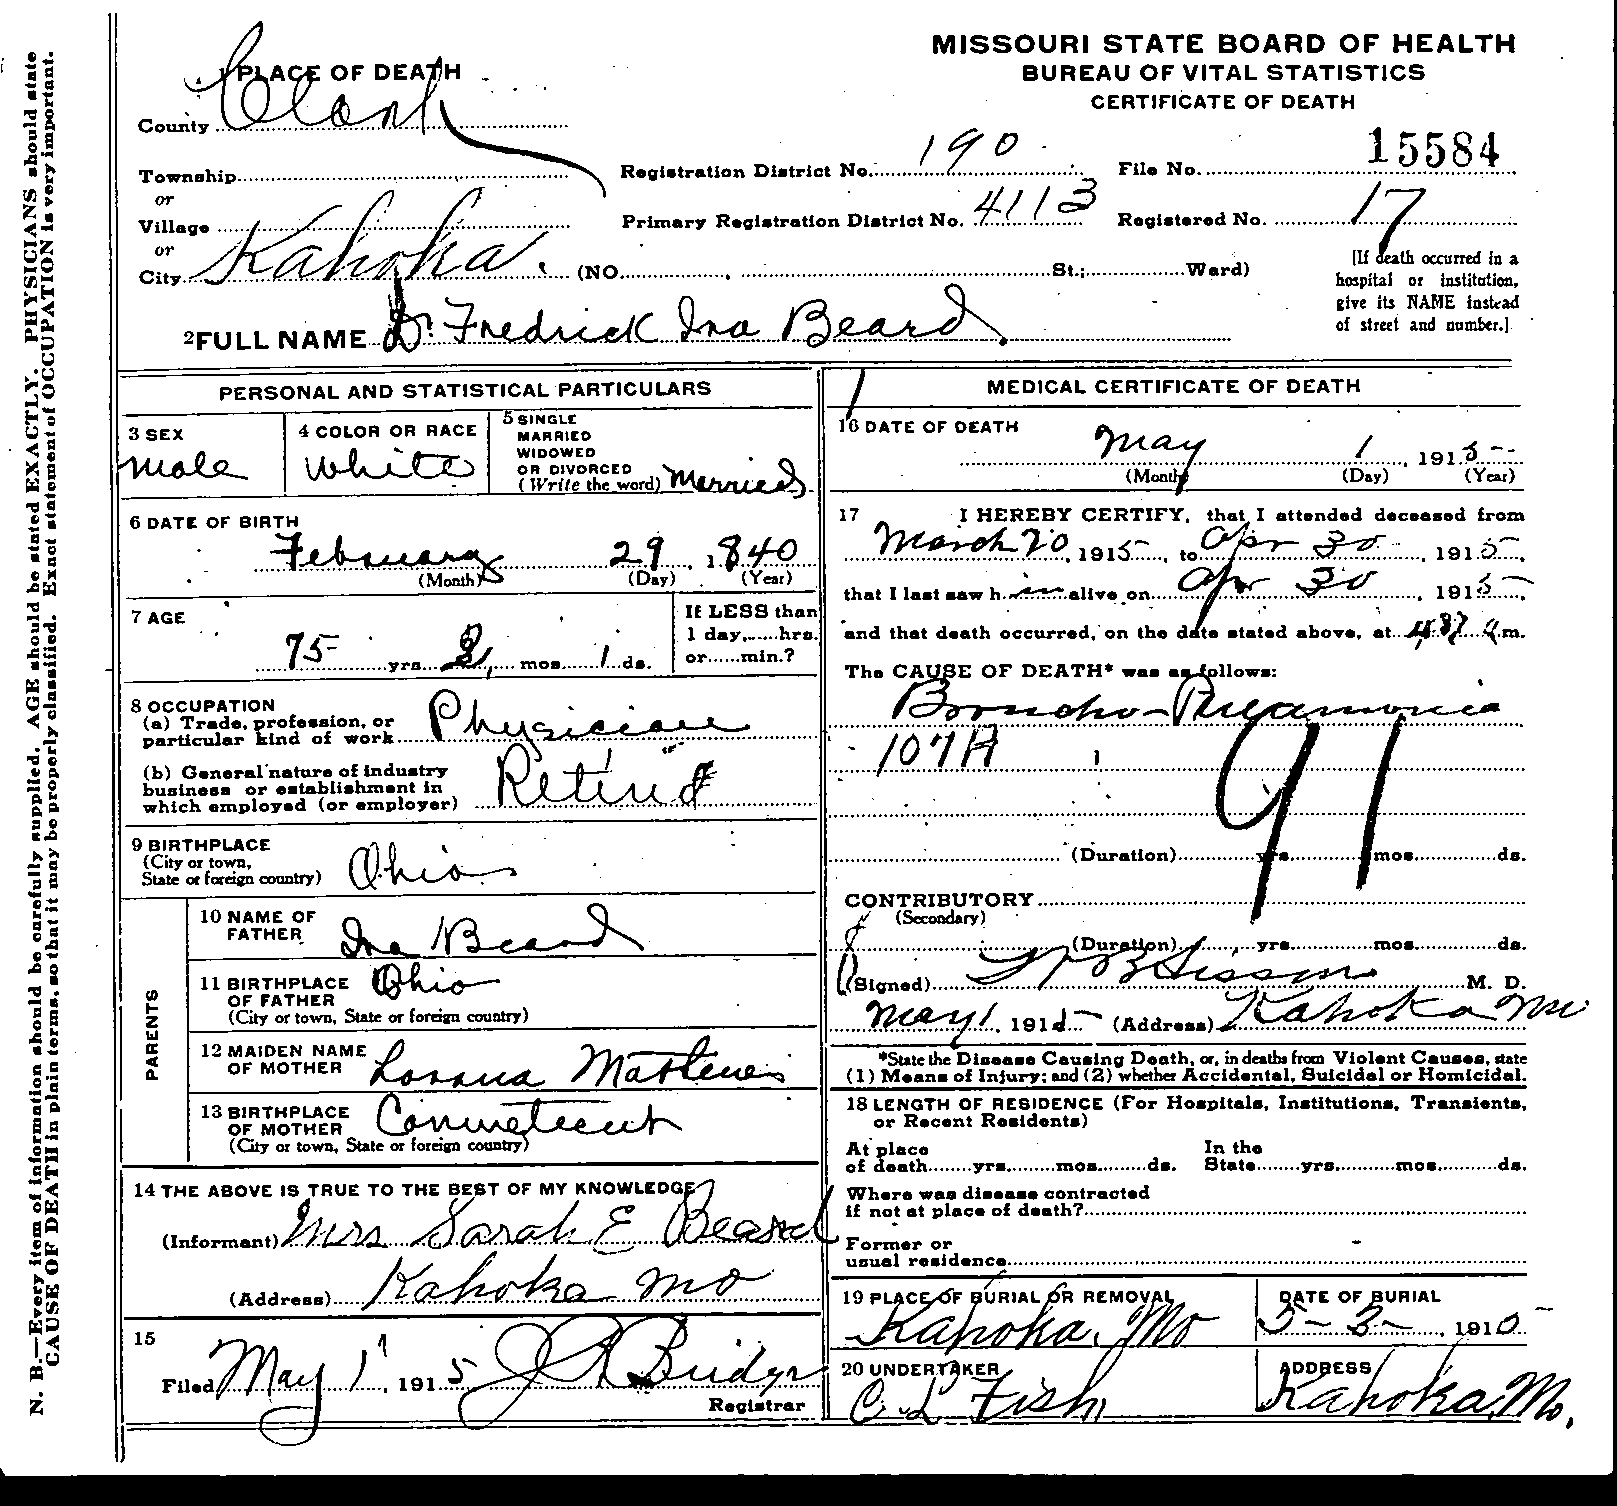 MISSOURI STATE BOARD OF HEALTH
BUREAU OF VITAL STATISTICS
CERTIFICATE OF DEATH
1 PLACE OF DEATH
County Clark
Township
or
Village
or
City Kahoka. (NO. , St.; Ward)
Registration District No. 190
Primary Registration District No. 4113
File No. 15584
Registered No. 17
[If death occurred in a
hospital or institution,
give its NAME instead
of street and number.]
2 FULL NAME Dr Fredrick Ira Beard.
PERSONAL AND STATISTICAL PARTICULARS
3 SEX
Male
4 COLOR OR RACE
White
5 SINGLE
MARRIED
WIDOWED
OR DIVORCED
(Write the word) Married
6 DATE OF BIRTH
February 29, 1840
(Month) (Day) (Year)
7 AGE
75 yrs. 2 mos. 1 ds.
If LESS than
1 day, hrs.
or min.?
8 OCCUPATION
(a) Trade, profession, or
particular kind of work Physician
(b) General nature of industry
business or establishment in
which employed (or employer) Retired
9 BIRTHPLACE
(City or town,
State or foreign country) Ohio
PARENTS
10 NAME OF
FATHER Ira Beard
11 BIRTHPLACE
OF FATHER Ohio
(City or town, State or foreign country)
12 MAIDEN NAME
OF MOTHER
13 BIRTHPLACE
OF MOTHER Connecticut
(City or town, State or foreign country)
14 THE ABOVE IS TRUE TO THE BEST OF MY KNOWLEDGE
(Informant) Mrs Sarah E Beard
(Address) Kahoka Mo
15
Filed May 1, 1915 J R Bridges
Registrar
MEDICAL CERTIFICATE OF DEATH
16 DATE OF DEATH
May 1, 1915
(Month) (Day) (Year)
17 I HEREBY CERTIFY, that I attended deceased from
March 20, 1915, to Apr 30, 1915,
that I last saw him alive on Apr 30, 1915
and that death occurred, on the date stated above, at m.
The CAUSE OF DEATH* was as follows:
Broncho-Pneumonia
107A 91
(Duration) yrs. mos. ds.
CONTRIBUTORY
(Secondary)
(Duration) yrs. mos. ds.
(Signed) Sisson M. D.
May 1, 1915 (Address) Kahoka Mo
*State the Disease Causing Death, or, in deaths from Violent Causes, state
(1) Means of Injury; and (2) whether Accidental, Suicidal or Homicidal.
18 LENGTH OF RESIDENCE (For Hospitals, Institutions, Transients,
or Recent Residents)
At place In the
of death yrs. mos. ds. State yrs. mos. ds.
Where was disease contracted
if not at place of death?
Former or
usual residence
19 PLACE OF BURIAL OR REMOVAL
Kahoka, Mo
DATE OF BURIAL
5-3-, 1915
20 UNDERTAKER
C. L. Fish
ADDRESS
Kahoka, Mo.
N. B.—Every item of information should be carefully supplied. AGE should be stated EXACTLY. PHYSICIANS should state
CAUSE OF DEATH in plain terms, so that it may be properly classified. Exact statement of OCCUPATION is very important.